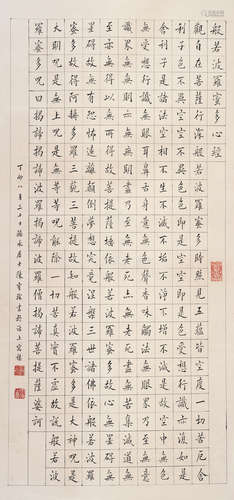 般若波羅蜜多心經
觀自在菩薩行深般若波羅蜜多時照見五蘊皆空度一切苦厄舍
利子色不異空空不異色色即是空空即是色受想行識亦復如是
舍利子是諸法空相不生不滅不垢不淨不增不減是故空中無色
無受想行識無眼耳鼻舌身意無色聲香味觸法無眼界乃至無意
識界無無明亦無無明盡乃至無老死亦無老死盡無苦集滅道無
智亦無得以無所得故菩提薩埵依般若波羅蜜多故心無罣礙無
罣礙故無有恐怖遠離顛倒夢想究竟涅槃三世諸佛依般若波羅
蜜多故得阿耨多羅三藐三菩提故知般若波羅蜜多是大神呪是
大明呪是無上呪是無等等呪能除一切苦真實不虛故說般若波
羅蜜多呪即說呪曰揭諦揭諦波羅揭諦波羅僧揭諦菩提薩婆訶
丁卯八月二十